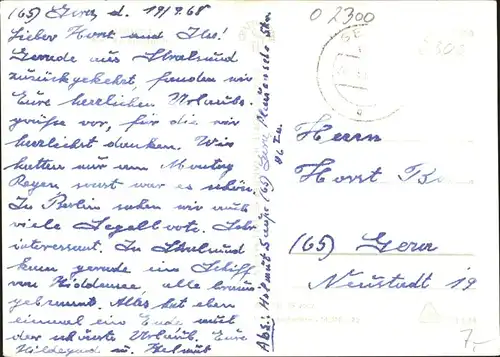 (65) Gera d. 19/9.68
Lieber Horst und Ilse!
Gerade aus Stralsund
zurückgekehrt, fanden wir
Eure herzlichen Urlaubs-
grüße vor, für die wir
herzlichst danken. Wir
hatten nur am Montag
Regen, sonst war es schön.
In Berlin sahen wir
viele Segelboote. Sehr
interessant. In Stralsund
kam gerade ein Schiff
von Hiddensee, alle braun
gebrannt. Alles hat eben
einmal ein Ende auch
der schönste Urlaub. Eure
Hildegard u. Helmut
Abs: Helmut (65) Gera
O 2300
Herrn
Horst
(65) Gera
Neustadt 19
7,-